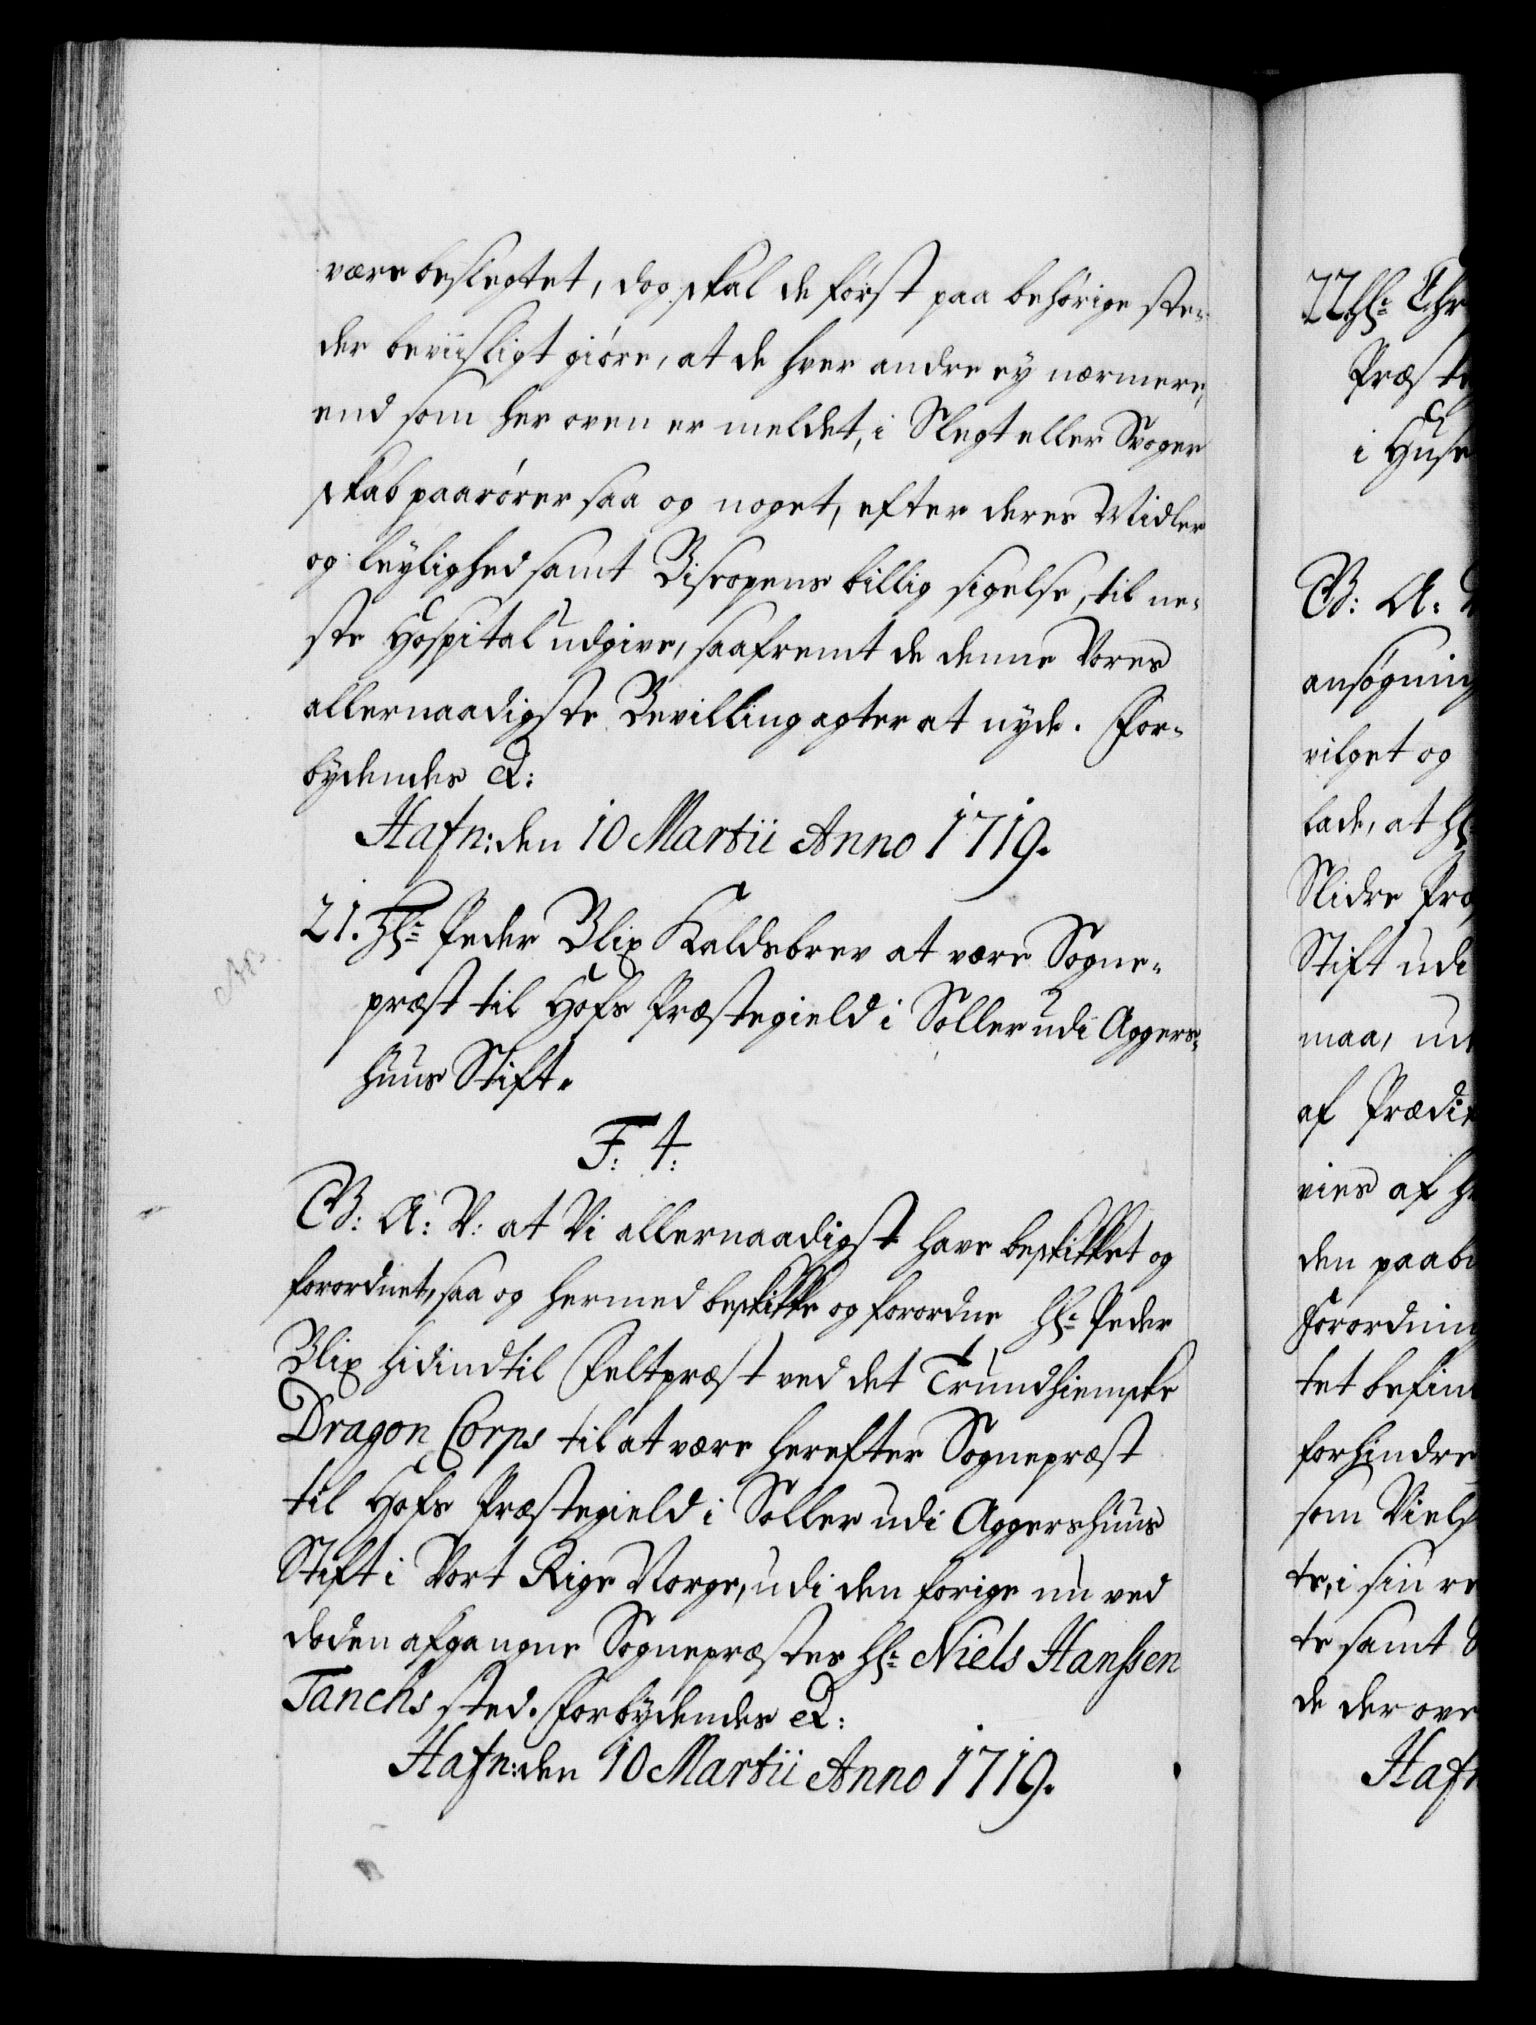 være beslegtet, dog skal de først paa behørige ste-
der beviisligt giøre, at de hver andre ey nærmere,
end som her oven er meldet, i Slegt eller Svoger
skab paarører saa og noget, efter deres Midler
og leylighed samt Biscopens billig sigelse, til ne-
ste Hospital udgive, saafremt de denne Vores
allernaadigste Bevilling agter at nyde. For-
bydendes &:
Hafn: den 10 Martii Anno 1719.
21. Hr: Peder Blix Kaldsbrev at være Sogne-
præst til Hofs Præstegield i Soller udi Aggers-
huus Stift.
F: 4:
G: A: V: at Vi allernaadigst have beskikket og
forordnet, saa og hermed beskikke og forordne Hr: Peder
Blix hidindtil Feltpræst ved det Trundhiemske
Dragon Corps til at være herefter Sognepræst
til Hofs Præstegield i Soller udi Aggershuus
Stift i Vort Rige Norge, udi den forige nu ved
døden afgangne Sognepræstes Hr: Niels Hanssen
Tanchs sted. Forbydendes &:
Hafn: den 10 Martii Anno 1719.
22. Hr: Chr
Præste
i Huse
G: A: V
ansøgning
vilget og
lade, at Hr:
Slidre Præ
Stift udi
maa, ud
af Prædik
vies af h
den paabu
Forordning
tet befin
forhindre
som Viels
te, i sin re
te samt
de der ove
Hafn